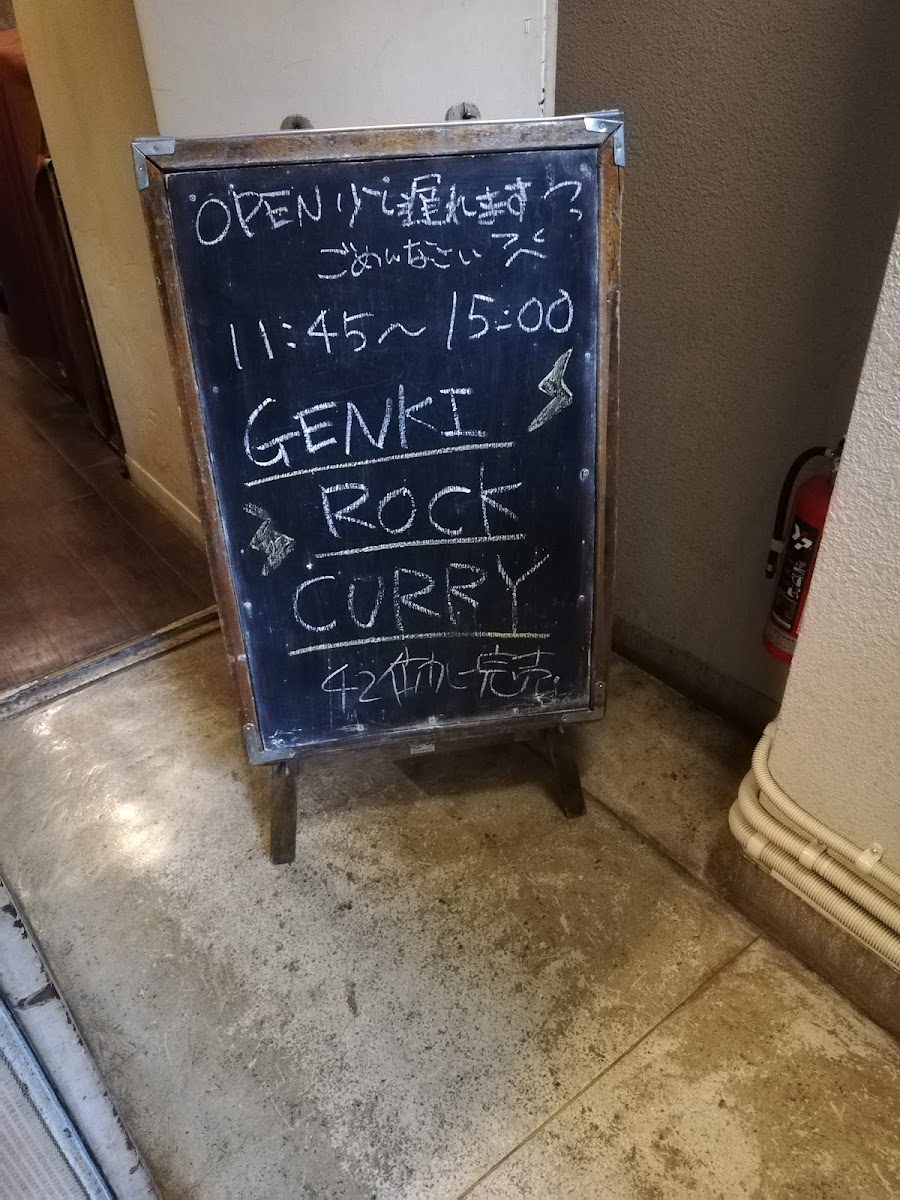 OPEN 少し遅れます
ごめんなさい
11:45〜15:00
GENKI
ROCK
CURRY
完売